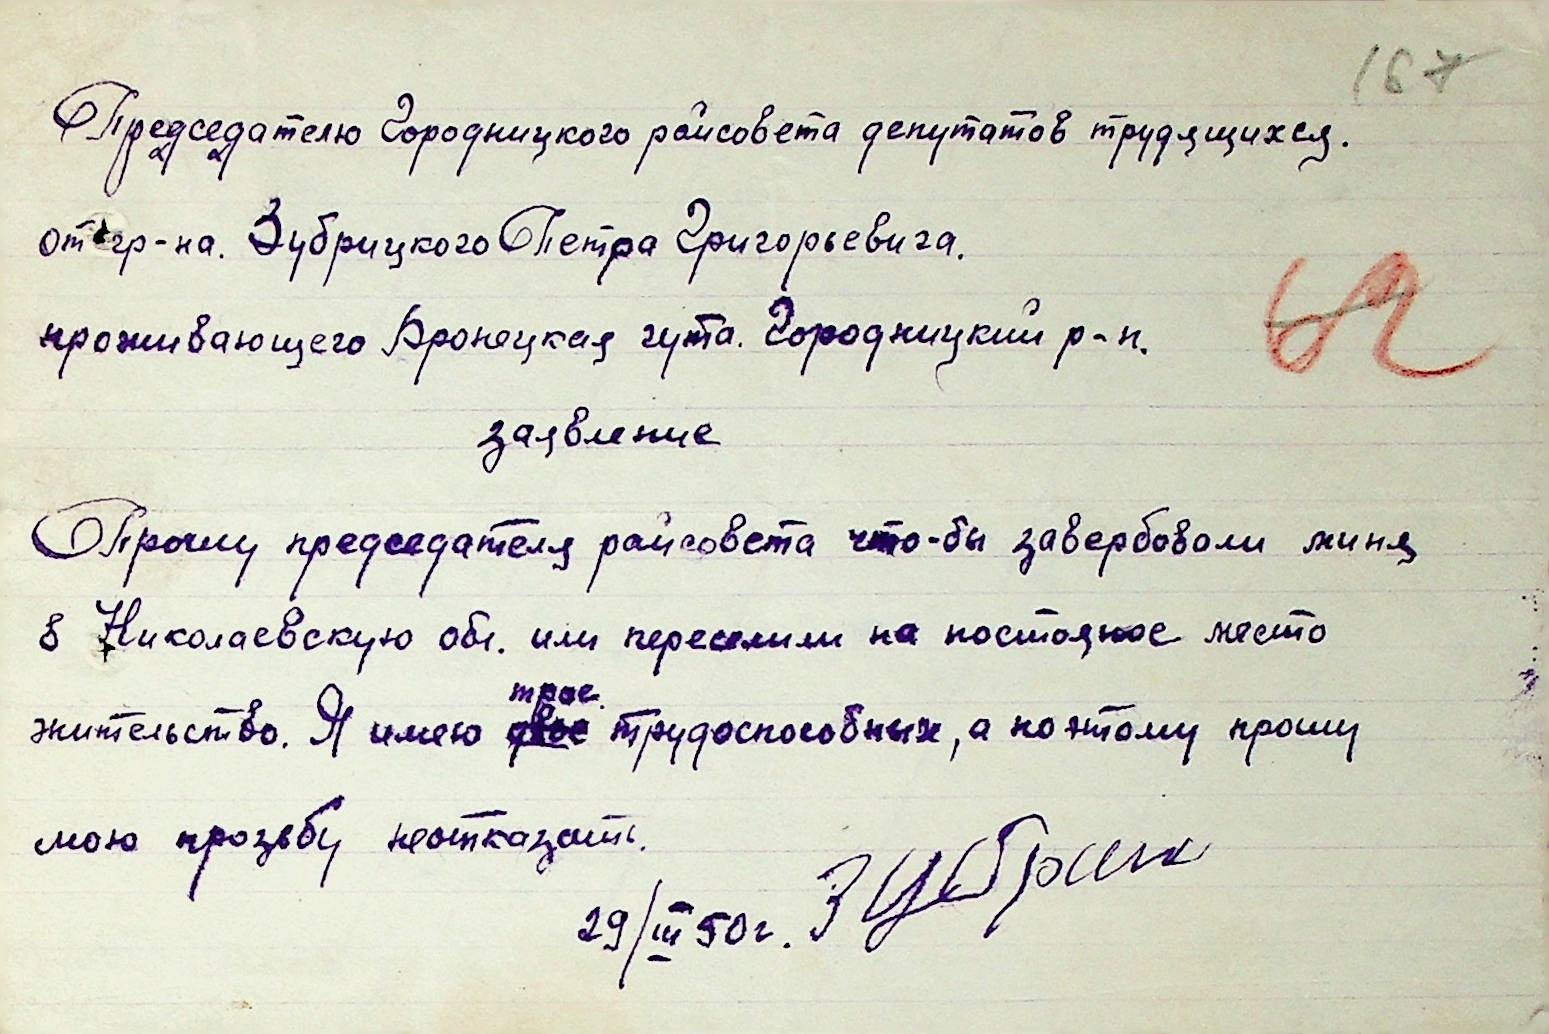 167
Председателю Городницкого райсовета депутатов трудящихся.
от гр-на. Зубрицкого Петра Григорьевича.
проживающего Бронецкая гута. Городницкий р-н.
заявление
Прошу председателя райсовета что-бы завербовали миня
в Николаевскую обл. или переселили на постояное место
трое.
жительство. Я имею двое трудоспособных, а поэтому прошу
мою прозьбу неотказать.
29/III 50г. Зубриц